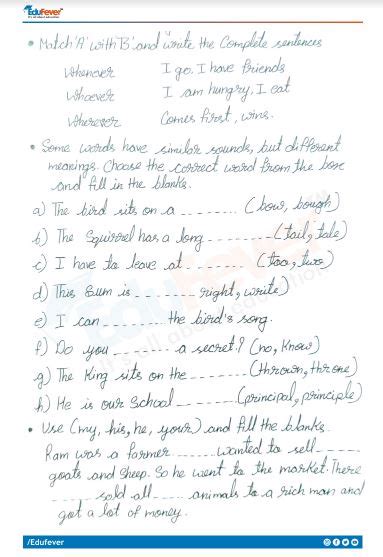 EduFever
• Match 'A' with 'B' and write the Complete sentences
Whenever I go, I have friends
Whoever I am hungry, I eat
Wherever Comes first, wins.
• Some words have similar sounds, but different
meanings. Choose the correct word from the box
and fill in the blanks.
a) The bird sits on a _______ (bow, bough)
b) The Squirrel has a long _______ (tail, tale)
c) I have to leave at _______ (too, two)
d) This Sum is _______ right, write)
e) I can _______ the bird's song.
f) Do you _______ a secret? (no, know)
g) The King sits on the _______ (thrown, throne)
h) He is our School _______ (principal, principle)
• Use (my, his, he, your) and fill the blanks.
Ram was a farmer _____ wanted to sell _____
goats and Sheep. So he went to the market. There
_____ sold all _____ animals to a rich man and
got a lot of money.
/Edufever